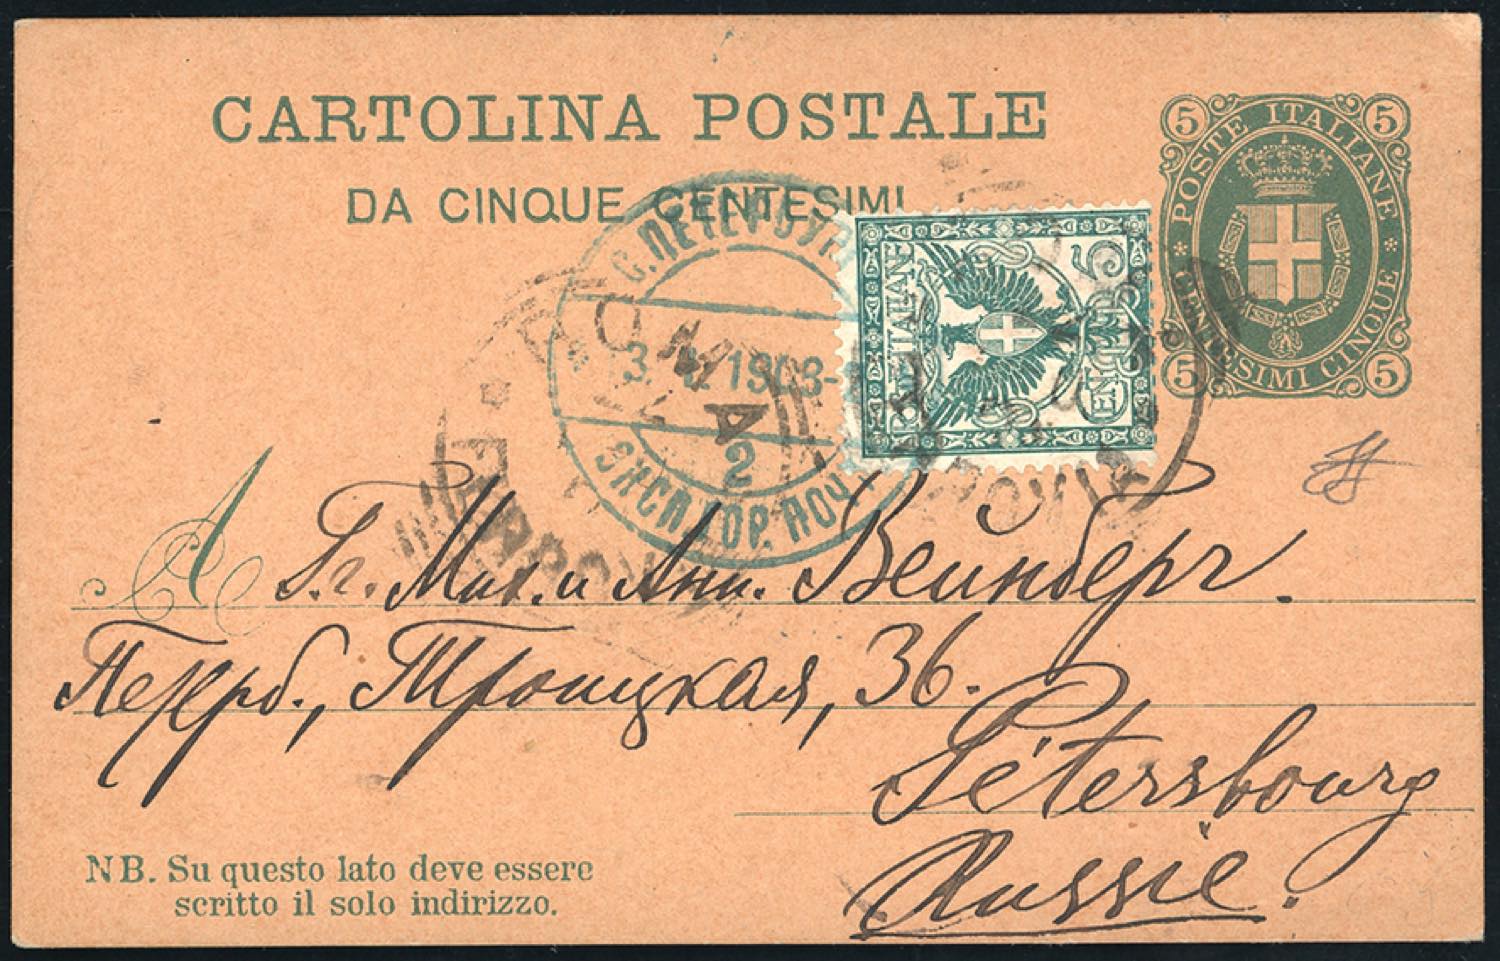 CARTOLINA POSTALE
DA CINQUE CENTESIMI
5 5
POSTE ITALIANE
CENTESIMI CINQUE
5 5
5
С.ПЕТЕРБУР
ROMA
3 1903
2
ЭКСП.ГОР.ПОЧТ
FERROVIA
A Гг. Мих. и Анн. Вейнберг.
Петерб., Троицкая, 36.
Pétersbourg
Russie.
NB. Su questo lato deve essere
scritto il solo indirizzo.